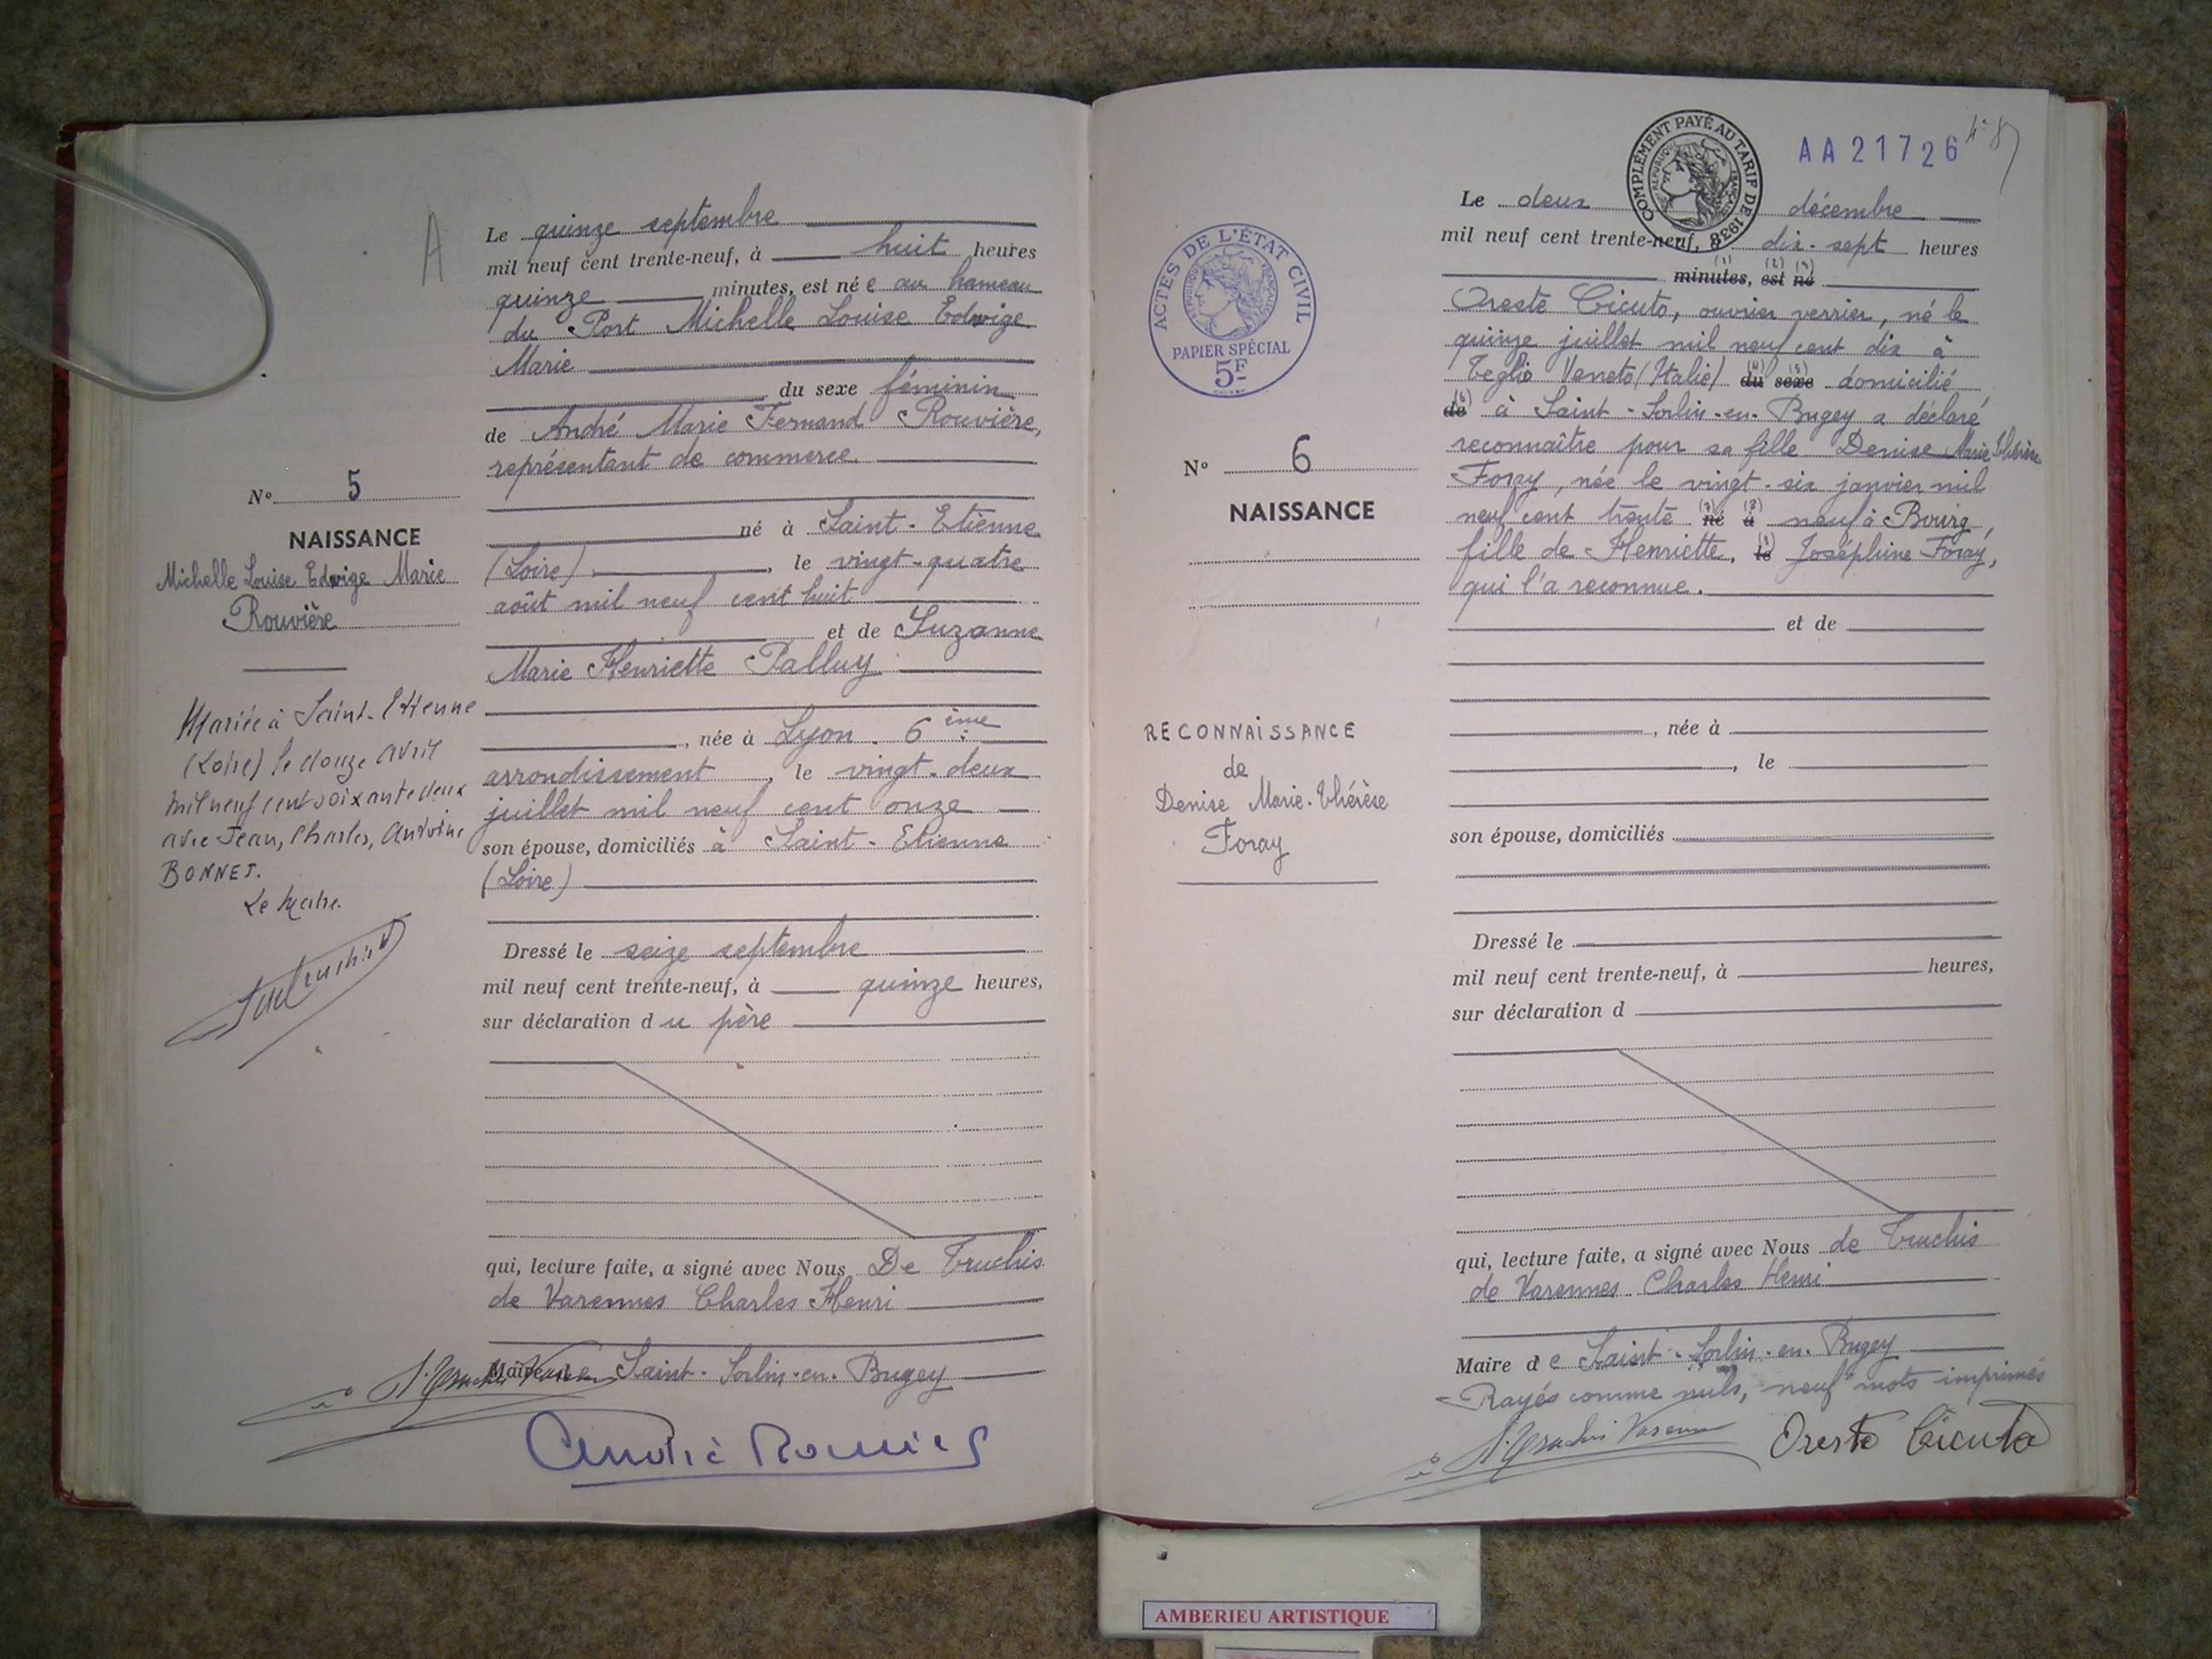 A
Le quinze septembre
mil neuf cent trente-neuf, à huit heures
quinze minutes, est née au hameau
du Port Michelle Louise Edwige
Marie
du sexe féminin
de André Marie Fernand Rouvière,
représentant de commerce
né à Saint-Etienne
(Loire), le vingt-quatre
août mil neuf cent huit
et de Suzanne
Marie Henriette Palluy
, née à Lyon. 6ème
arrondissement, le vingt-deux
juillet mil neuf cent onze
son épouse, domiciliés à Saint-Etienne
(Loire)
Dressé le seize septembre
mil neuf cent trente-neuf, à quinze heures,
sur déclaration du père
qui, lecture faite, a signé avec Nous De Truchis
de Varennes Charles Henri
Maire de Saint-Sorlin-en-Bugey
N° 5
NAISSANCE
Michelle Louise Edwige Marie
Rouvière
Mariée à Saint-Etienne
(Loire) le douze avril
mil neuf cent soixante deux
avec Jean, Charles, Antoine
BONNET.
Le Maire.
COMPLÉMENT PAYÉ AU TARIF DE 1938
RÉPUBLIQUE FRANÇAISE
AA21726
ACTES DE L'ÉTAT CIVIL
RÉPUBLIQUE FRANÇAISE
PAPIER SPÉCIAL
5F
N° 6
NAISSANCE
RECONNAISSANCE
de
Denise Marie-Thérèse
Foray
Le deux décembre
mil neuf cent trente-neuf, à dix-sept heures
minutes, (1) est (2) né (3)
Oreste Cicuto, ouvrier verrier, né le
quinze juillet mil neuf cent dix à
Teglio Veneto (Italie) du (4) sexe (5) domicilié
de (6) à Saint-Sorlin-en-Bugey a déclaré
reconnaître pour sa fille Denise Marie Thérèse
Foray, née le vingt-six janvier mil
neuf cent trente né (7) à (8) neuf à Bourg,
fille de Henriette, le (9) Joséphine Foray,
qui l'a reconnue.
et de
, née à
, le
son épouse, domiciliés
Dressé le
mil neuf cent trente-neuf, à heures,
sur déclaration d
qui, lecture faite, a signé avec Nous de Truchis
de Varennes Charles Henri
Maire de Saint-Sorlin-en-Bugey
Rayés comme nuls, neuf mots imprimés
Oreste Cicuto
AMBERIEU ARTISTIQUE